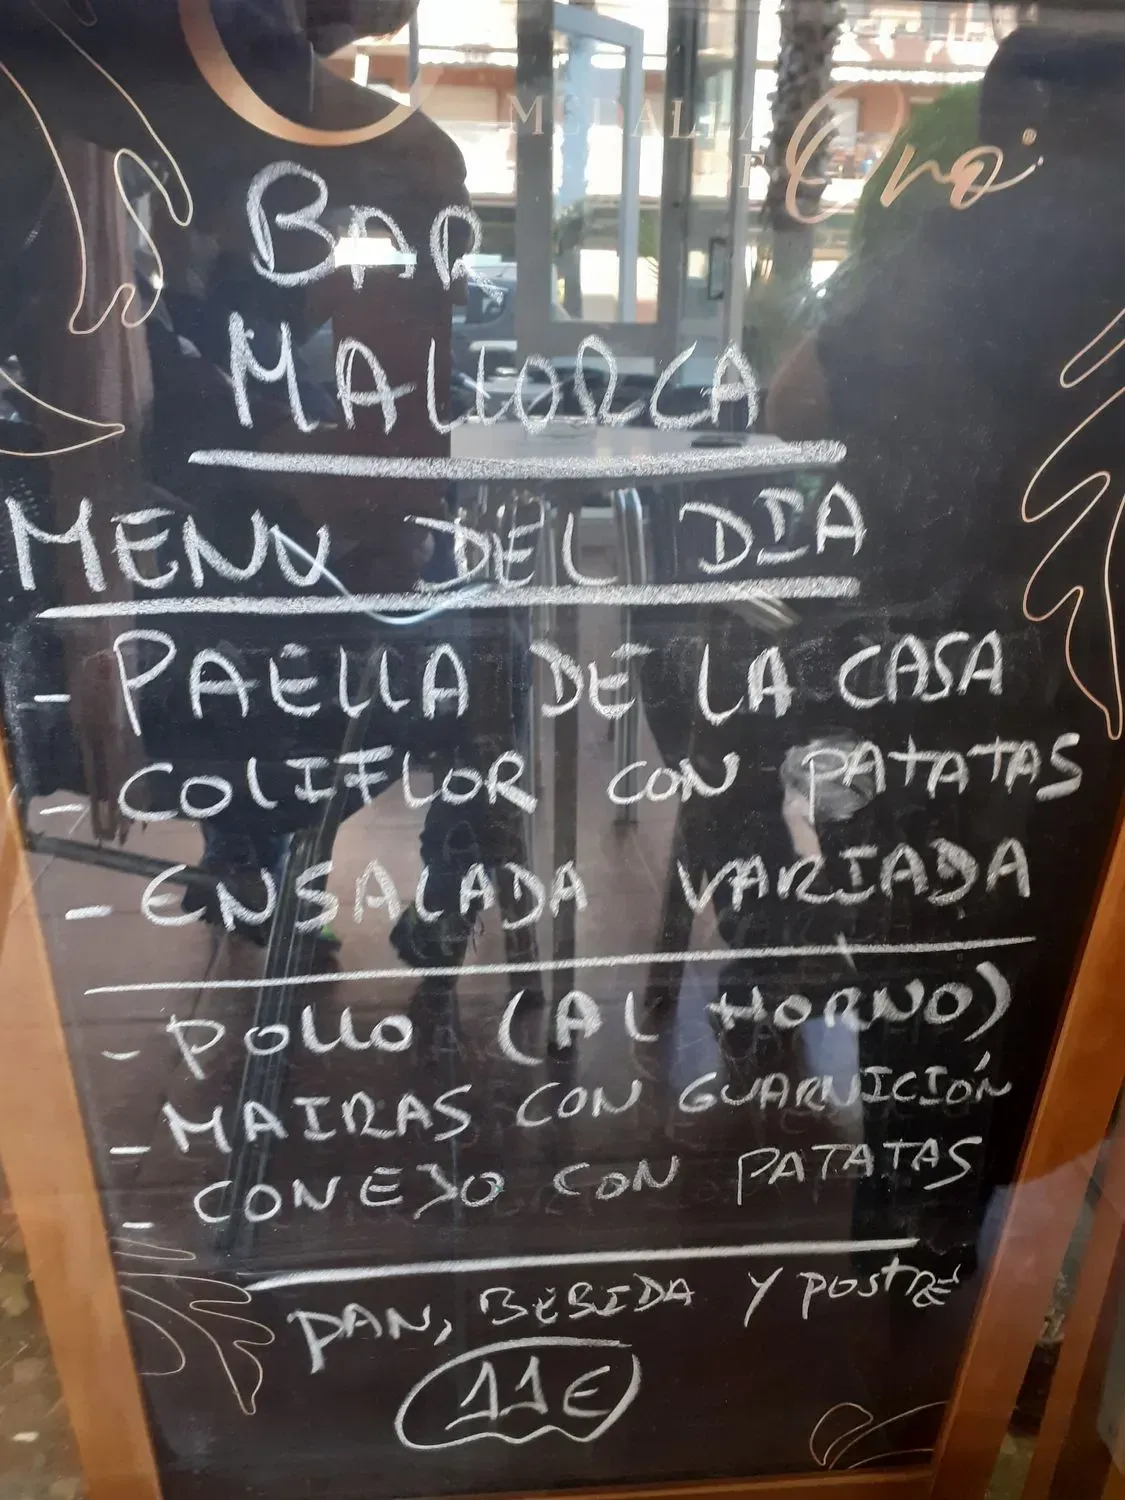 MEDALLA
Oro
BAR
MALLORCA
MENU DEL DIA
- PAELLA DE LA CASA
- COLIFLOR CON PATATAS
- ENSALADA VARIADA
- POLLO (AL HORNO)
- MAIRAS CON GUARNICIÓN
- CONEJO CON PATATAS
PAN, BEBIDA Y POSTRE
11€